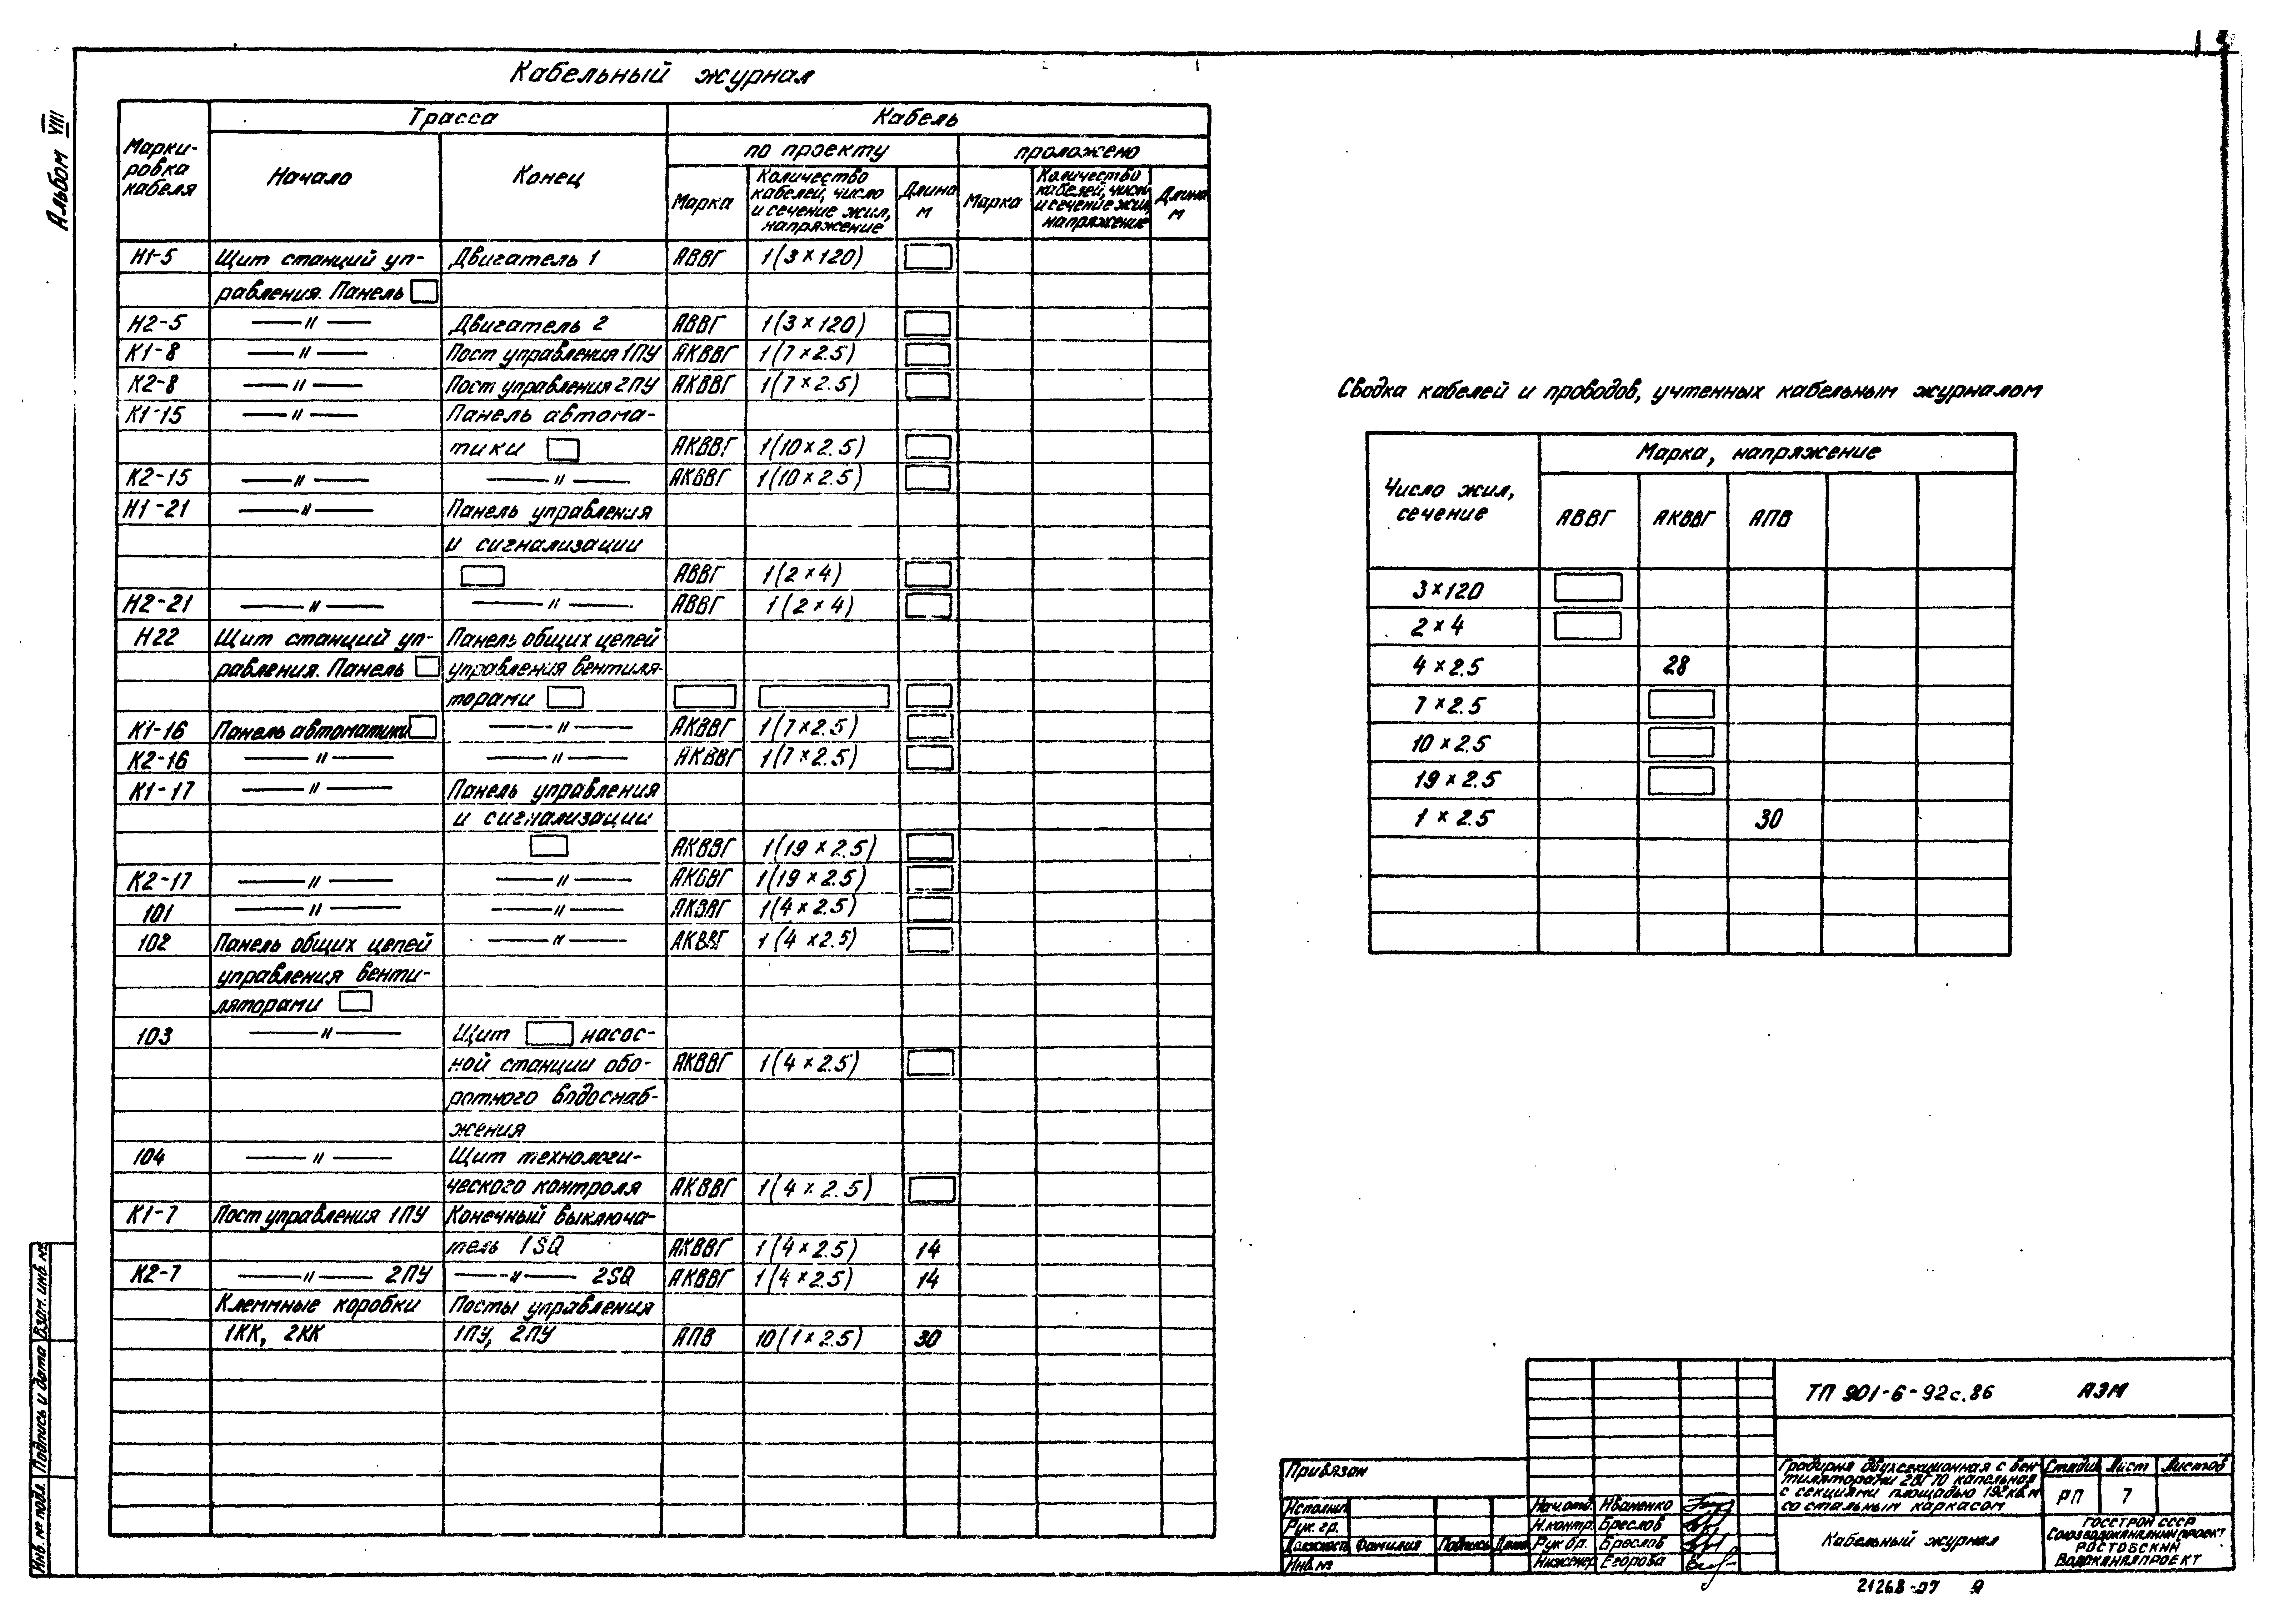 Альбом VIII
Кабельный журнал
Марки-
ровка
кабеля
Трасса
Кабель
Начало
Конец
по проекту
проложено
Марка
Количество
кабелей, число
и сечение жил,
напряжение
Длина
м
Марка
Количество
кабелей, число
и сечение жил,
напряжение
Длина
м
Н1-5 Щит станций уп- Двигатель 1 АВВГ 1(3×120)
равления. Панель
Н2-5 —〃— Двигатель 2 АВВГ 1(3×120)
К1-8 —〃— Пост управления 1ПУ АКВВГ 1(7×2.5)
К2-8 —〃— Пост управления 2ПУ АКВВГ 1(7×2.5)
К1-15 —〃— Панель автома-
тики АКВВГ 1(10×2.5)
К2-15 —〃— —〃— АКВВГ 1(10×2.5)
Н1-21 —〃— Панель управления
и сигнализации
АВВГ 1(2×4)
Н2-21 —〃— —〃— АВВГ 1(2×4)
Н22 Щит станций уп- Панель общих цепей
равления. Панель управления вентиля-
торами
К1-16 Панель автоматики —〃— АКВВГ 1(7×2.5)
К2-16 —〃— —〃— АКВВГ 1(7×2.5)
К1-17 —〃— Панель управления
и сигнализации
АКВВГ 1(19×2.5)
К2-17 —〃— —〃— АКВВГ 1(19×2.5)
101 —〃— —〃— АКВВГ 1(4×2.5)
102 Панель общих цепей —〃— АКВВГ 1(4×2.5)
управления венти-
ляторами
103 —〃— Щит насос-
ной станции обо- АКВВГ 1(4×2.5)
ротного водоснаб-
жения
104 —〃— Щит технологи-
ческого контроля АКВВГ 1(4×2.5)
К1-7 Пост управления 1ПУ Конечный выключа-
тель 1SQ АКВВГ 1(4×2.5) 14
К2-7 —〃— 2ПУ —〃— 2SQ АКВВГ 1(4×2.5) 14
Клеммные коробки Посты управления
1КК, 2КК 1ПУ, 2ПУ АПВ 10(1×2.5) 30
Сводка кабелей и проводов, учтенных кабельным журналом
Число жил,
сечение
Марка, напряжение
АВВГ АКВВГ АПВ
3×120
2×4
4×2.5 28
7×2.5
10×2.5
19×2.5
1×2.5 30
ТП 901-6-92с.86 АЭМ
Привязан
Исполнил
Рук. гр.
Должность Фамилия Подпись Дата
Инв. №
Нач. отд. Иваненко
Н.контр. Бреслов
Рук бр. Бреслов
Инженер Егорова
Градирня двухсекционная с вен-
тиляторами 2ВГ70 капельная
с секциями площадью 192кв.м
со стальным каркасом
Стадия Лист Листов
РП 7
Кабельный журнал
ГОССТРОЙ СССР
СОЮЗВОДОКАНАЛНИИПРОЕКТ
РОСТОВСКИЙ
ВОДОКАНАЛПРОЕКТ
21268-07 9
Инв. № подл. Подпись и дата Взам. инв. №